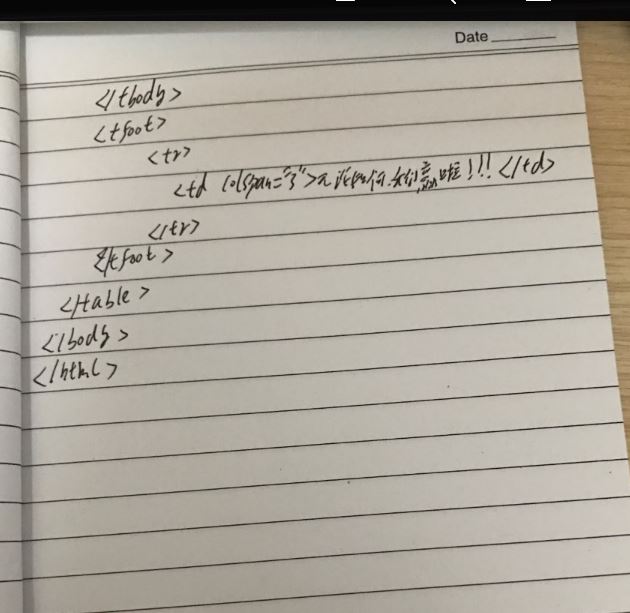 Date
</tbody>
<tfoot>
<tr>
<td colspan="3">无论如何,我们 啦!!!</td>
</tr>
</tfoot>
</table>
</body>
</html>